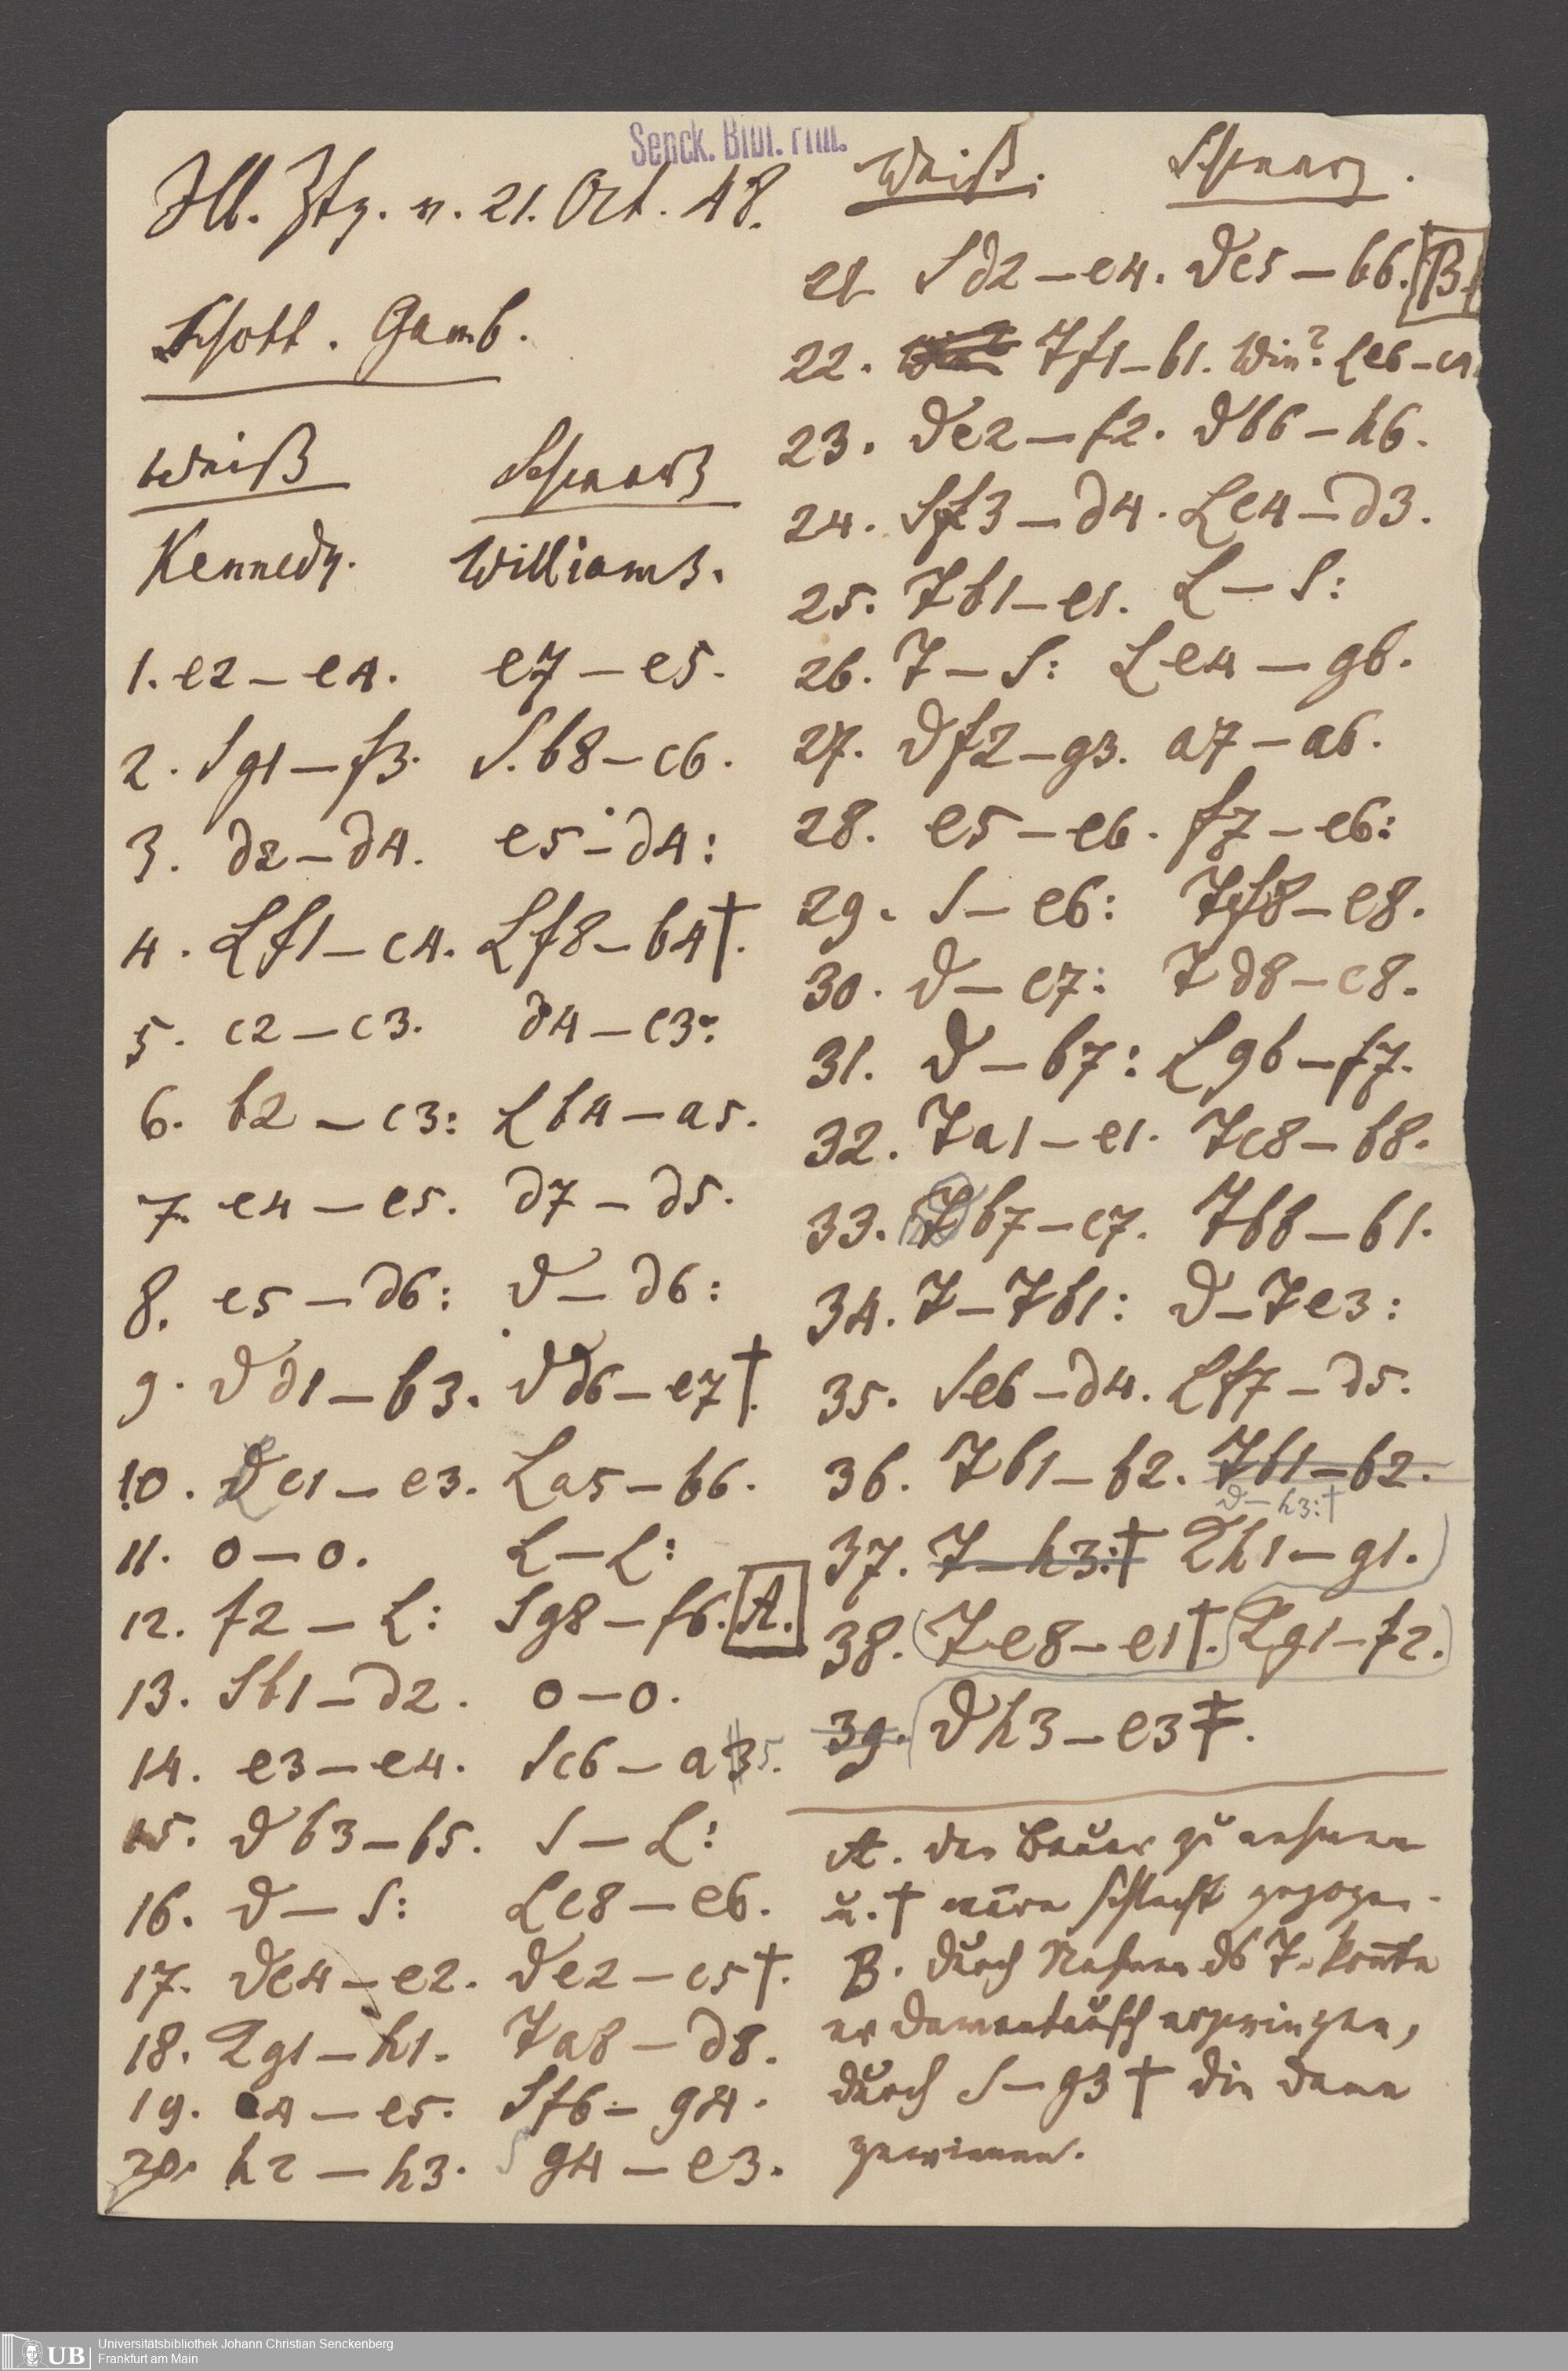 Senck. Bibl. Ffm.
Ill. Ztg. v. 21. Oct. 48.
Schott. Gamb.
Weiß Schwarz
Kennedy. Williams.
1. e2 — e4. e7 — e5.
2. Sg1 — f3. S.b8 — c6.
3. d2 — d4. e5 — d4:
4. Lf1 — c4. Lf8 — b4†.
5. c2 — c3. d4 — c3:
6. b2 — c3: Lb4 — a5.
7. e4 — e5. d7 — d5.
8. e5 — d6: D — d6:
9. Dd1 — b3. Dd6 — e7†.
10. Lc1 — e3. La5 — b6.
11. o — o. L — L:
12. f2 — L: Sg8 — f6. A.
13. Sb1 — d2. o — o.
14. e3 — e4. Sc6 — a5.
15. Db3 — b5. S — L:
16. D — S: Lc8 — e6.
17. Dc4 — e2. De2 — c5†.
18. Kg1 — h1. Ta8 — d8.
19. e4 — e5. Sf6 — g4.
20. h2 — h3. S g4 — e3.
Weiß. Schwarz.
21 Sd2 — e4. Dc5 — b6. B.
22. Tf1 — b1. Win? Le6 — c4
23. De2 — f2. Db6 — h6.
24. Sf3 — d4. Lc4 — d3.
25. Tb1 — e1. L — S:
26. T — S: Le4 — g6.
27. Df2 — g3. a7 — a6.
28. e5 — e6. f7 — e6:
29. S — e6: Tf8 — e8.
30. D — c7: Td8 — c8.
31. D — b7: Lg6 — f7.
32. Ta1 — e1. Tc8 — b8.
33. D b7 — c7. Tb8 — b1.
34. T — Tb1: D — Te3:
35. Se6 — d4. Lf7 — d5.
36. Tb1 — b2. Tb1 — b2.
D — h3:†
37. T — h3:† Kh1 — g1.
38. (Te8 — e1†. Kg1 — f2.)
39. Dh3 — e3‡.
A. den Bauer zu nehmen
u. † wäre schlecht gezogen.
B. durch Nehmen ds T. konnte
er Damentausch erzwingen,
durch S — g3 † die Dame
gewinnen.
UB Universitätsbibliothek Johann Christian Senckenberg
Frankfurt am Main